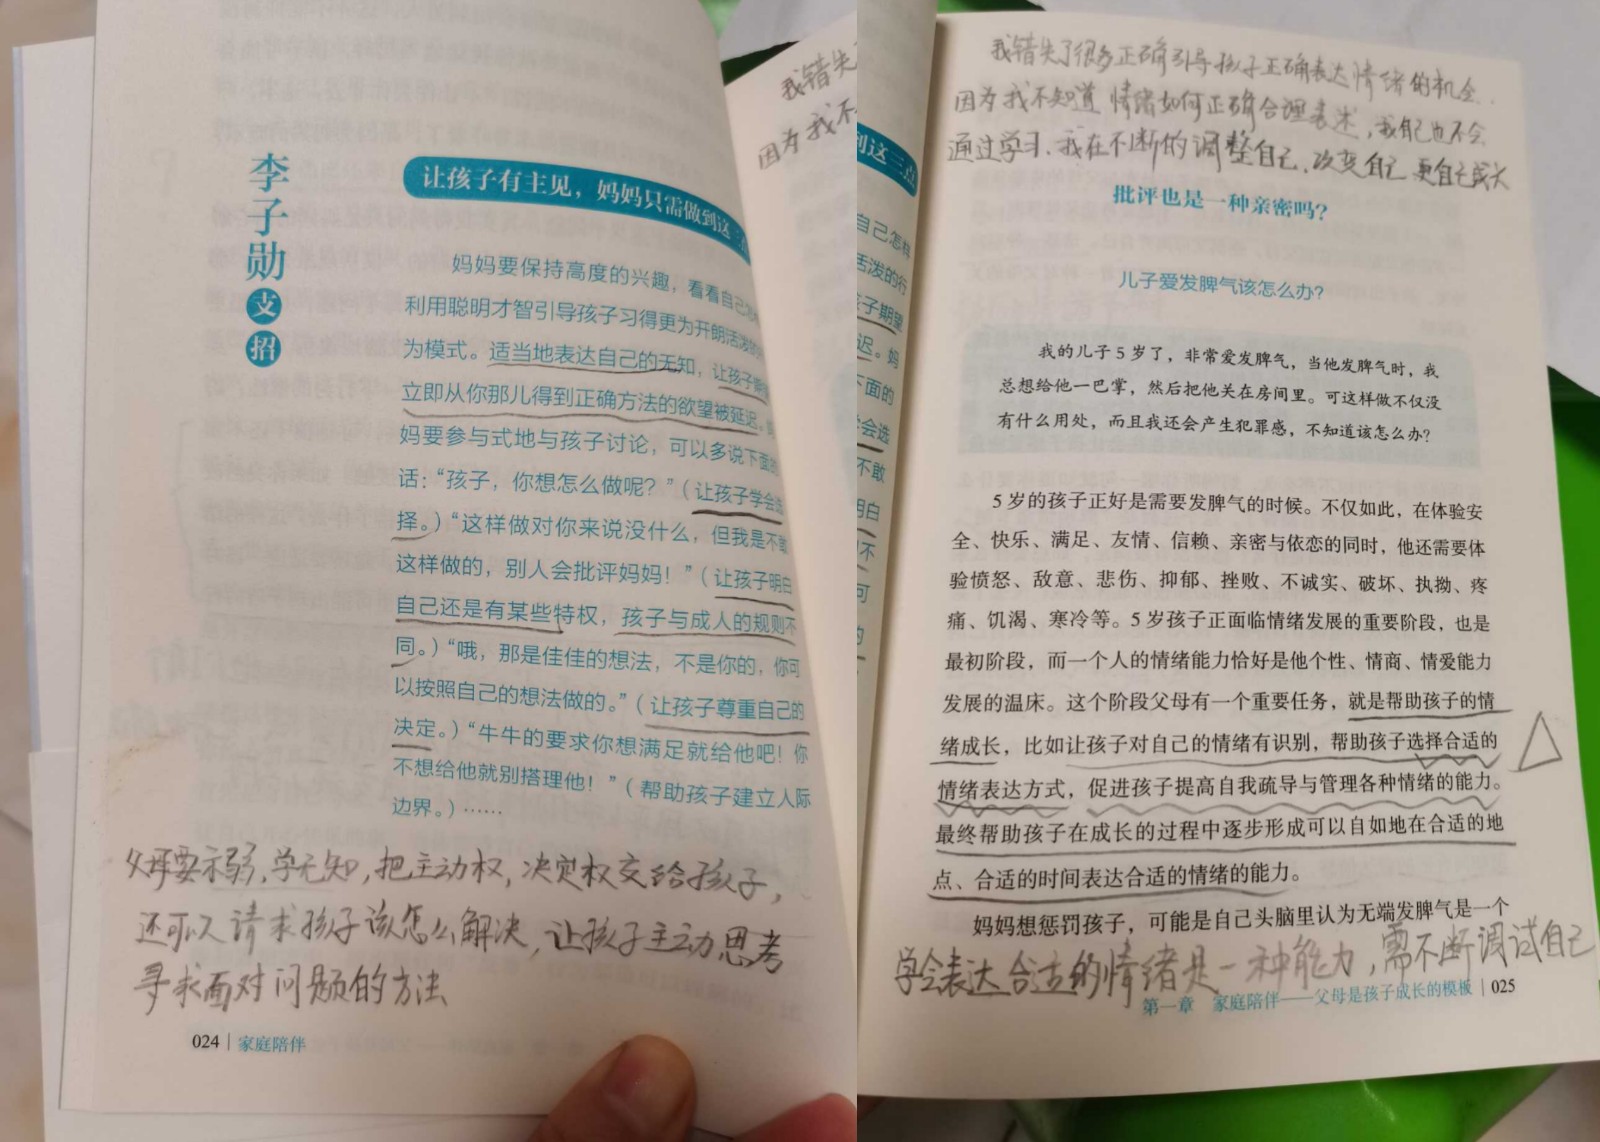 李子勋支招
让孩子有主见，妈妈只需做到这三点
妈妈要保持高度的兴趣，看看自己怎样
利用聪明才智引导孩子习得更为开朗活泼的行
为模式。适当地表达自己的无知，让孩子期望
立即从你那儿得到正确方法的欲望被延迟。妈
妈要参与式地与孩子讨论，可以多说下面的
话：“孩子，你想怎么做呢？”（让孩子学会选
择。）“这样做对你来说没什么，但我是不敢
这样做的，别人会批评妈妈！”（让孩子明白
自己还是有某些特权，孩子与成人的规则不
同。）“哦，那是佳佳的想法，不是你的，你可
以按照自己的想法做的。”（让孩子尊重自己的
决定。）“牛牛的要求你想满足就给他吧！你
不想给他就别搭理他！”（帮助孩子建立人际
边界。）……
父母要示弱，学无知，把主动权，决定权交给孩子，
还可以请求孩子该怎么解决，让孩子主动思考
寻求面对问题的方法
024 | 家庭陪伴
我错失
因为我不
到这三点
自己怎样
活泼的行
孩子期望
迟。妈
下面的
学会选
不敢
明白
不
可
的
我错失了很多正确引导孩子正确表达情绪的机会.
因为我不知道情绪如何正确合理表述，我自己也不会
通过学习、我在不断的调整自己、改变自己 更自己成大
批评也是一种亲密吗？
儿子爱发脾气该怎么办？
我的儿子 5 岁了，非常爱发脾气，当他发脾气时，我
总想给他一巴掌，然后把他关在房间里。可这样做不仅没
有什么用处，而且我还会产生犯罪感，不知道该怎么办？
5 岁的孩子正好是需要发脾气的时候。不仅如此，在体验安
全、快乐、满足、友情、信赖、亲密与依恋的同时，他还需要体
验愤怒、敌意、悲伤、抑郁、挫败、不诚实、破坏、执拗、疼
痛、饥渴、寒冷等。5 岁孩子正面临情绪发展的重要阶段，也是
最初阶段，而一个人的情绪能力恰好是他个性、情商、情爱能力
发展的温床。这个阶段父母有一个重要任务，就是帮助孩子的情
绪成长，比如让孩子对自己的情绪有识别，帮助孩子选择合适的
情绪表达方式，促进孩子提高自我疏导与管理各种情绪的能力。
最终帮助孩子在成长的过程中逐步形成可以自如地在合适的地
点、合适的时间表达合适的情绪的能力。
妈妈想惩罚孩子，可能是自己头脑里认为无端发脾气是一个
学会表达合适的情绪是一种能力，需不断调试自己
第一章 家庭陪伴——父母是孩子成长的模板 | 025